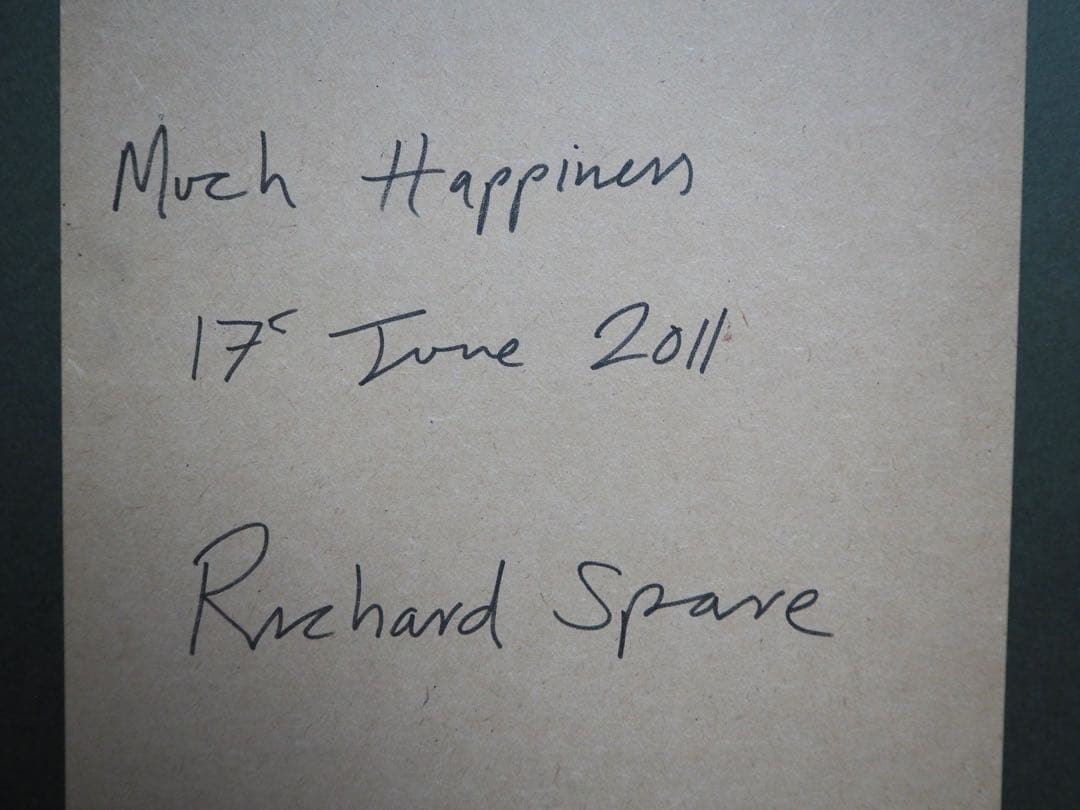 Much Happiness
17 June 2011
Richard Spare